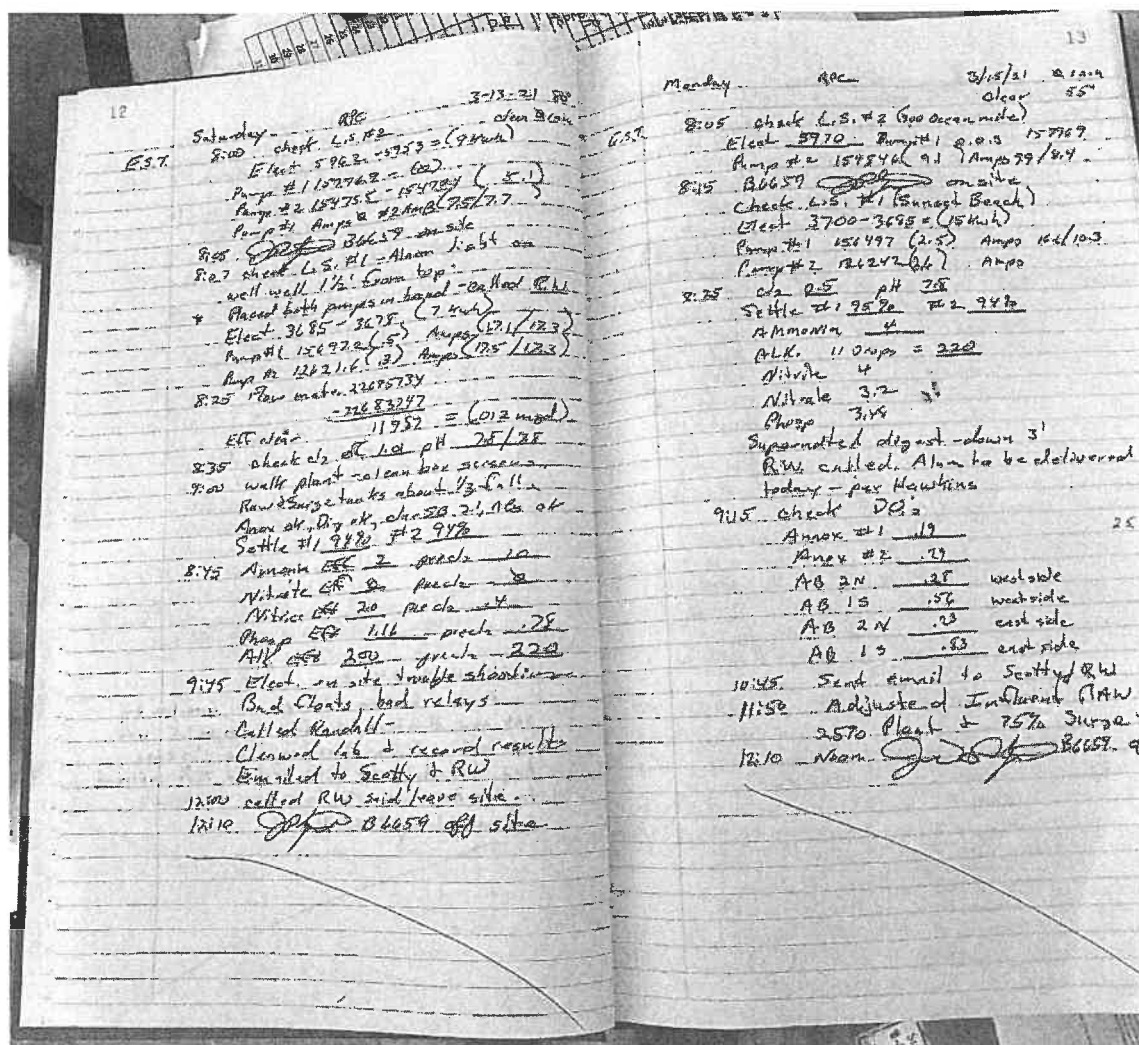 12
Saturday RPC 3-13-21
E.S.T. 8:00 check L.S. #2
Elect 5962 - 5953 = (9 Kwh)
Pump #1 157762 = (00)
Pump #2 154755 - 154704 (5.1)
Pump #1 Amps #2 Amps (7.5/7.7
8:05 B6659 on site
8:07 check L.S. #1 - Alarm light on
well well 1½' from top.
* Placed both pumps in hand - called RW
Elect 3685 - 3678 (7 Kwh)
Pump #1 156972 (.5) Amps (17.1/17.3)
Pump #2 126216 (.3) Amps (17.5/17.3)
8:25 Flow meter 22695734
-22683747
11952 = (012 mgd)
Eff clear
8:35 check cl2 1.01 pH 7.8/7.8
9:00 walk plant - clean box screens
Raw & Surge tanks about 1/3 full
Anox ok, Dig ok,
Settle #1 94% #2 94%
8:45 Ammonia Eff 2 precl2
Nitrate Eff precl2
Nitrite Eff 20 precl2 .4
Phosp Eff 1.16 precl2 .78
Alk eff 200 precl2 220
9:45 Elect. on site trouble shooting
Bad floats, bad relays
Called Randall -
Cleaned lab & record results
Emailed to Scotty & RW
12:00 called RW said leave site.
12:10 B6659 off site
13
Monday RPC 3/15/21
clear 55°
8:05 check L.S. #2 (300 Oceanside)
Elect 5970 Pump #1 0.0.3 157769
Pump #2 154846 (9.1) Amps 99/8.4
8:15 B6659 on site
Check L.S. #1 (Sunset Beach)
Elect 3700 - 3685 = (15 Kwh)
Pump #1 156497 (2.5) Amps 16.6/10.3
Pump #2 126242 (2.6) Amps
8:25 cl2 0.5 pH 7.8
Settle #1 95% #2 94%
Ammonia 4
ALK. 11 Drops = 220
Nitrite 4
Nitrate 3.2
Phosp 3.48
Supernatted digest - down 3'
RW. called. Alum to be delivered
today - per Hawkins
9:15 check DO:s
Annox #1 .19
Anox #2 .29
AB 2N .28 west side
AB 1S .56 west side
AB 2N .23 east side
AB 1S .53 east side
10:45 Send email to Scotty/RW
11:50 Adjusted Influent RAW
25% Plant & 75% Surge
12:10 Noon B6659